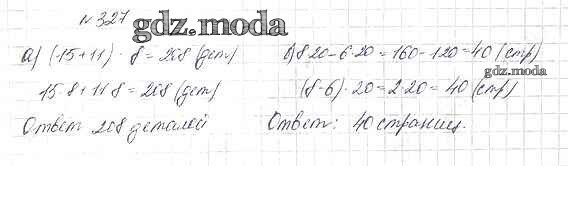 № 327
gdz.moda
а) (15+11) · 8 = 208 (дет)
15·8+11·8 = 208 (дет)
Ответ 208 деталей
б) 8·20-6·20=160-120=40 (стр)
gdz.moda
(8-6)·20=2·20=40 (стр)
Ответ: 40 страниц.